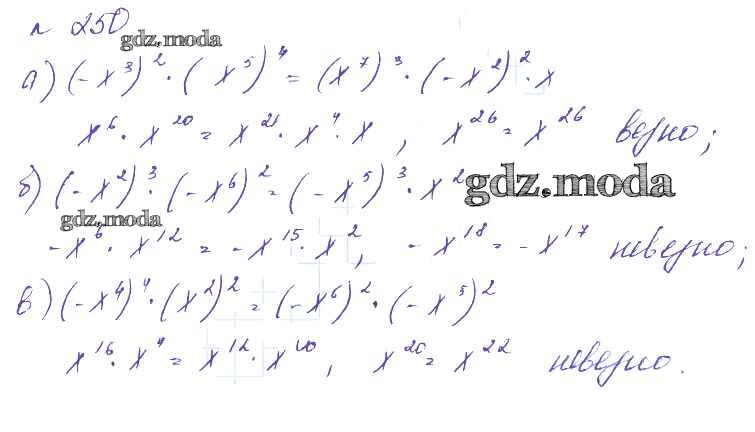 н 250
gdz.moda
а) (-x³)² · (x⁵)⁴ = (x⁷)³ · (-x²)² · x
x⁶ · x²⁰ = x²¹ · x⁴ · x, x²⁶ = x²⁶ верно;
б) (-x²)³ · (-x⁶)² = (-x⁵)³ · x²
gdz.moda
gdz.moda
-x⁶ · x¹² = -x¹⁵ · x², -x¹⁸ = -x¹⁷ неверно;
в) (-x⁴)⁴ · (x²)² = (-x⁶)² · (-x⁵)²
x¹⁶ · x⁴ = x¹² · x¹⁰, x²⁰ = x²² неверно.